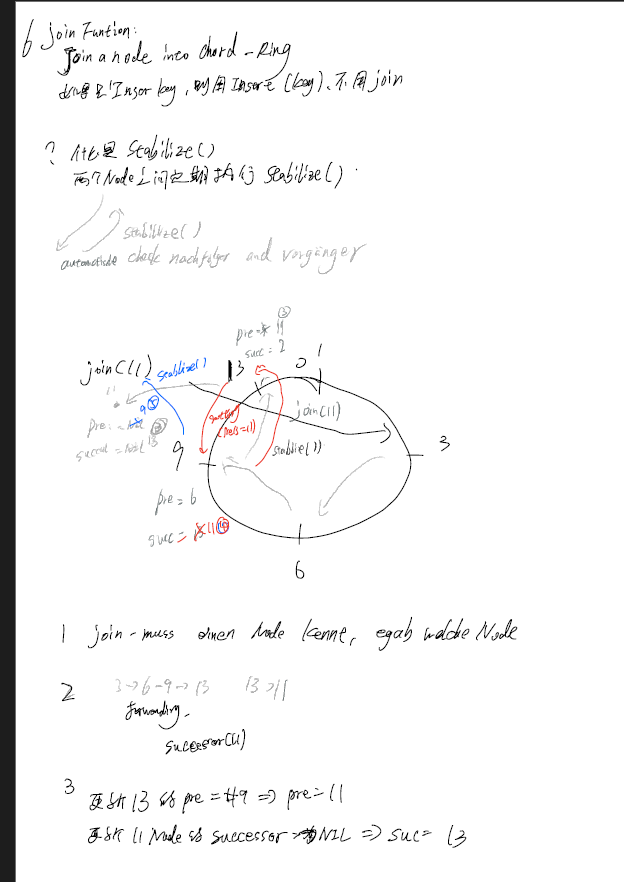 6 Join Funtion:
Join a node into chord-Ring
如果是 Insert key, 则用 Insert (key), 不用 join
? 什么是 Stabilize()
两个Node之间定期执行 Stabilize()
Stabilize()
automatische check nachfolger and vorgänger
③
pre = 11
succ = 2
join(11) Stabilize() 13 0 1
11
pre: = 9
succ = Nil 13
join(11)
(pre's=11)
stablie()
9
3
pre = 6
succ = 13 11
6
1 join - muss einen Node kenne, egal welche Node
2 3→6-9→13 13→11
forwarding.
successor(11)
3 更新 13 的 pre = 9 => pre = 11
更新 11 Node 的 successor 为 NIL => suc = 13